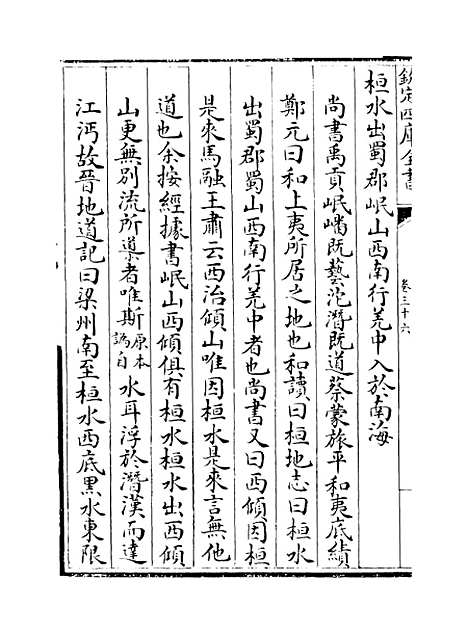 欽定四庫全書
卷三十六
桓水出蜀郡岷山西南行羌中入於南海
尚書禹貢岷嶓既藝沱潛既道蔡蒙旅平和夷底績
鄭元曰和上夷所居之地也和讀曰桓地志曰桓水
出蜀郡蜀山西南行羌中者也尚書又曰西傾因桓
是來馬融王肅云西治傾山唯因桓水是來言無他
道也余按經據書岷山西傾俱有桓水桓水出西傾
山更無別流所導者唯斯原本訛自水耳浮於潛漢而達
江沔故晉地道記曰梁州南至桓水西底黑水東限